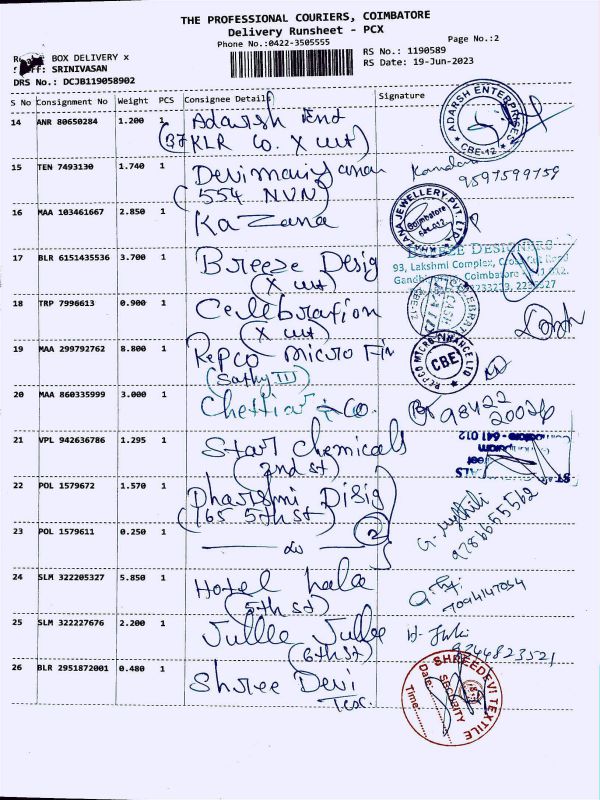 THE PROFESSIONAL COURIERS, COIMBATORE
Delivery Runsheet - PCX
Phone No.:0422-3505555
Page No.:2
BOX DELIVERY x
SRINIVASAN
DRS No.: DCJB119058902
RS No.: 1190589
RS Date: 19-Jun-2023
S No Consignment No Weight PCS Consignee Details Signature
14 ANR 80650284 1.200 1 Adarsh Ent
KLR Co. X cut
ADARSH ENTERPRISES CBE-12
15 TEN 7493130 1.740 1
(554 NVN)
9597599759
16 MAA 103461667 2.850 1 Kazana
JEWELLERY PVT. LTD. Coimbatore
17 BLR 6151435536 3.700 1 Breeze Desig
(X cut)
BREEZE DESIGNERS
93, Lakshmi Complex, Cross Cut Road
18 TRP 7996613 0.900 1 Cellebration
(X cut)
19 MAA 299792762 8.800 1 Repco Micro Fin
(Sathy
REPCO MICRO FINANCE LTD CBE
20 MAA 860335999 3.000 1 Chettiar & Co.
98422
20026
21 VPL 942636786 1.295 1 Star Chemicals
(2nd st)
22 POL 1579672 1.570 1
(165 5th st)
2
G. Mythili
9786655562
23 POL 1579611 0.250 1 do
24 SLM 322205327 5.850 1 Hotel
(5th st)
25 SLM 322227676 2.200 1 Jullee Jullee
(6th st)
9344823521
26 BLR 2951872001 0.480 1 Shree Devi
Tex.
SHREEDEVI TEXTILE
SECURITY
Date:
Time: